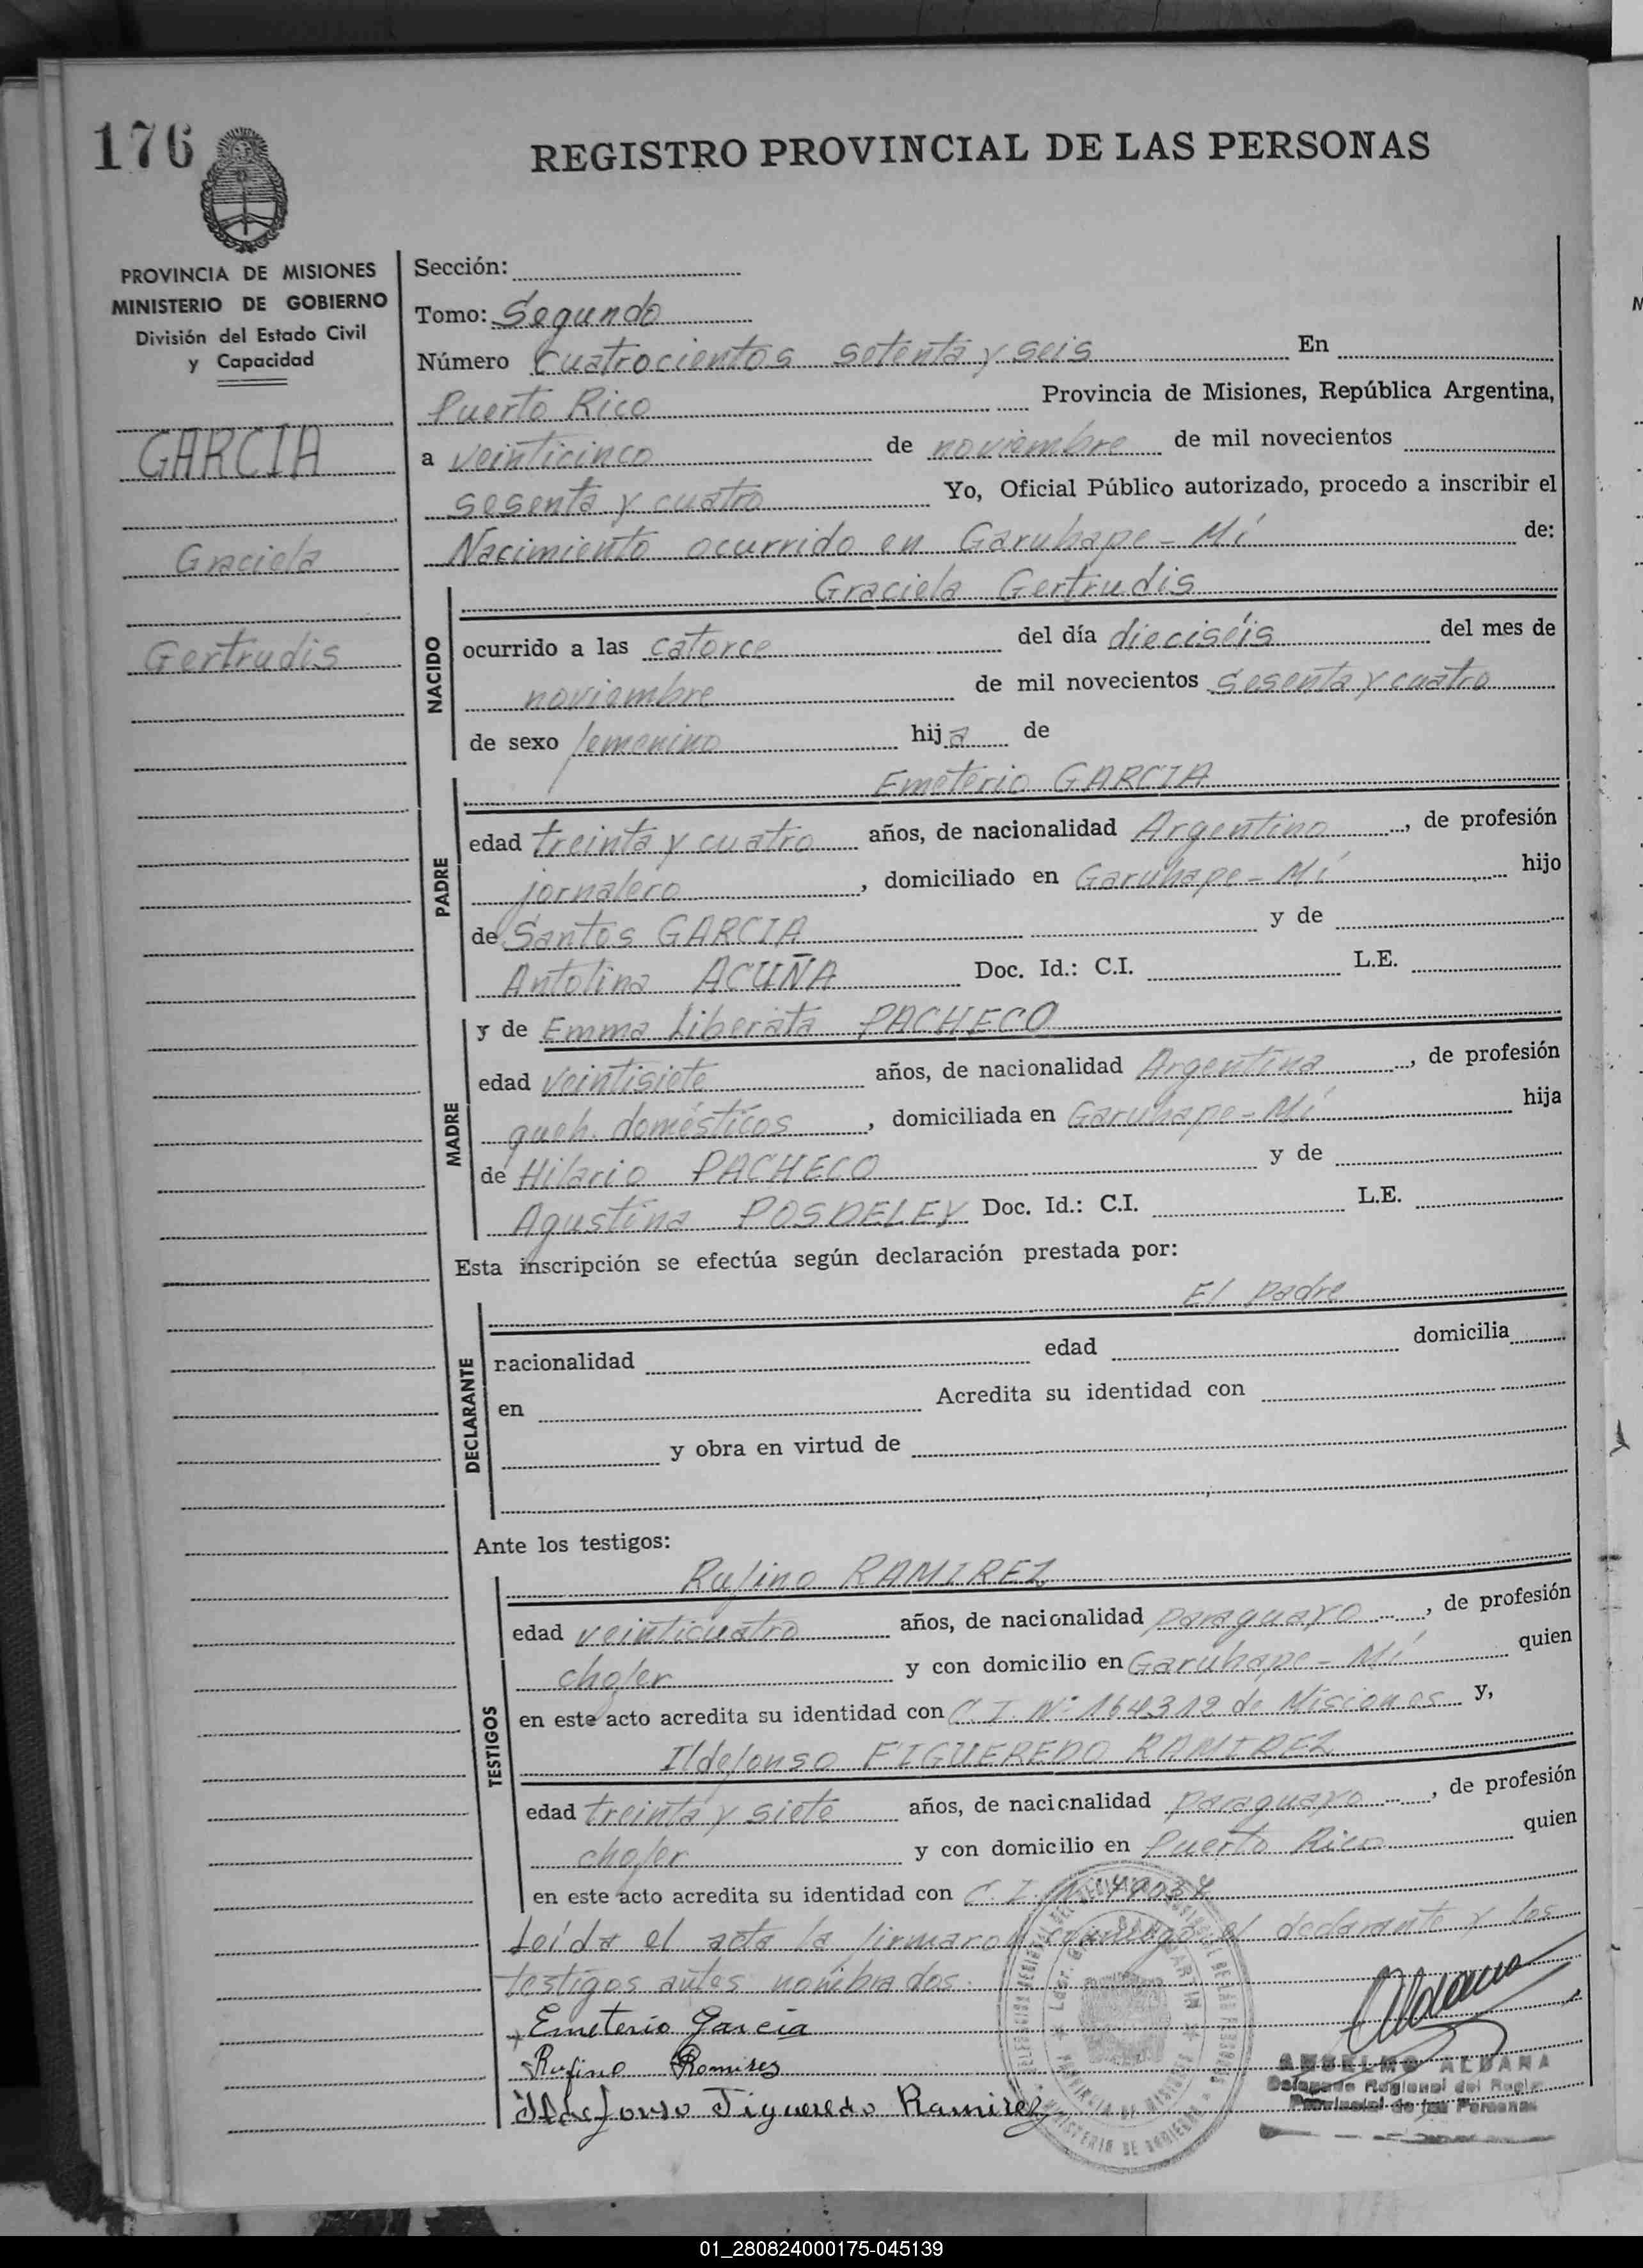 176
REGISTRO PROVINCIAL DE LAS PERSONAS
PROVINCIA DE MISIONES
MINISTERIO DE GOBIERNO
División del Estado Civil
y Capacidad
GARCIA
Graciela
Gertrudis
Sección:
Tomo: Segundo
Número Cuatrocientos setenta y seis En
Puerto Rico Provincia de Misiones, República Argentina,
a veinticinco de noviembre de mil novecientos
sesenta y cuatro Yo, Oficial Público autorizado, procedo a inscribir el
Nacimiento ocurrido en Garuhape-Mí de:
NACIDO
Graciela Gertrudis
ocurrido a las catorce del día dieciséis del mes de
noviembre de mil novecientos sesenta y cuatro
de sexo femenino hija de
PADRE
Emeterio GARCIA
edad treinta y cuatro años, de nacionalidad Argentino, de profesión
jornalero, domiciliado en Garuhape-Mí hijo
de Santos GARCIA y de
Antolina ACUÑA Doc. Id.: C.I. L.E.
MADRE
y de Emma Liberata PACHECO
edad veintisiete años, de nacionalidad Argentina, de profesión
queh. domésticos, domiciliada en Garuhape-Mí hija
de Hilario PACHECO y de
Agustina POSDELEY Doc. Id.: C.I. L.E.
Esta inscripción se efectúa según declaración prestada por:
DECLARANTE
El padre
nacionalidad edad domicilia
en Acredita su identidad con
y obra en virtud de
Ante los testigos:
TESTIGOS
Rufino RAMIREZ
edad veinticuatro años, de nacionalidad paraguayo, de profesión
chofer y con domicilio en Garuhape-Mí quien
en este acto acredita su identidad con C.I. Nº 164312 de Misiones y,
Ildefonso FIGUEREDO RAMIREZ
edad treinta y siete años, de nacionalidad paraguayo, de profesión
chofer y con domicilio en Puerto Rico quien
en este acto acredita su identidad con C.I.
Leída el acta la firmaron conmigo el declarante y los
testigos antes nombrados.
Emeterio Garcia
Rufino Romires
Ildefonso Figueredo Ramirez
Aldana
ANSELMO ALDANA
Delegado Regional del Regis.
Provincial de las Personas
PROVINCIA DE MISIONES
MINISTERIO DE GOBIERNO
01_280824000175-045139